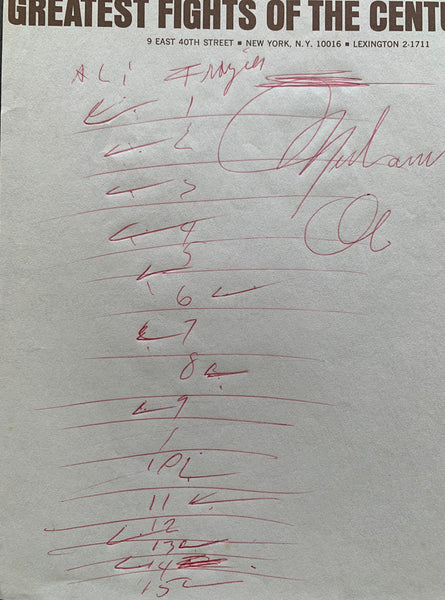 GREATEST FIGHTS OF THE CENT
9 EAST 40TH STREET ▪ NEW YORK, N.Y. 10016 ▪ LEXINGTON 2-1711
ALi Frazier
1
2
3
4
5
6
7
8
9
11
12
13
14
15